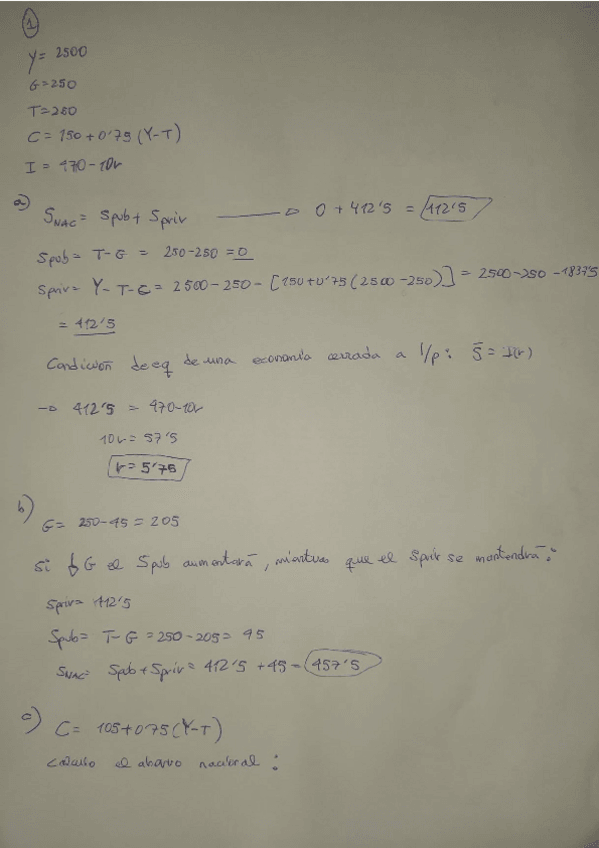 1
Y = 2500
G = 250
T = 250
C = 150 + 0'75 (Y-T)
I = 470 - 10r
a) SNAC = Spub + Spriv → 0 + 412'5 = 412'5
Spub = T - G = 250 - 250 = 0
Spriv = Y - T - C = 2500 - 250 - [150 + 0'75 (2500 - 250)] = 2500 - 250 - 1837'5
= 412'5
Condición de eq de una economía cerrada a l/p: S̄ = I(r)
→ 412'5 = 470 - 10r
10r = 57'5
r = 5'75
b)
G = 250 - 45 = 205
Si ↓ G el Spub aumentará, mientras que el Spriv se mantendrá:
Spriv = 412'5
Spub = T - G = 250 - 205 = 45
SNAC = Spub + Spriv = 412'5 + 45 = 457'5
c) C = 105 + 0'75 (Y-T)
Calculo el ahorro nacional: